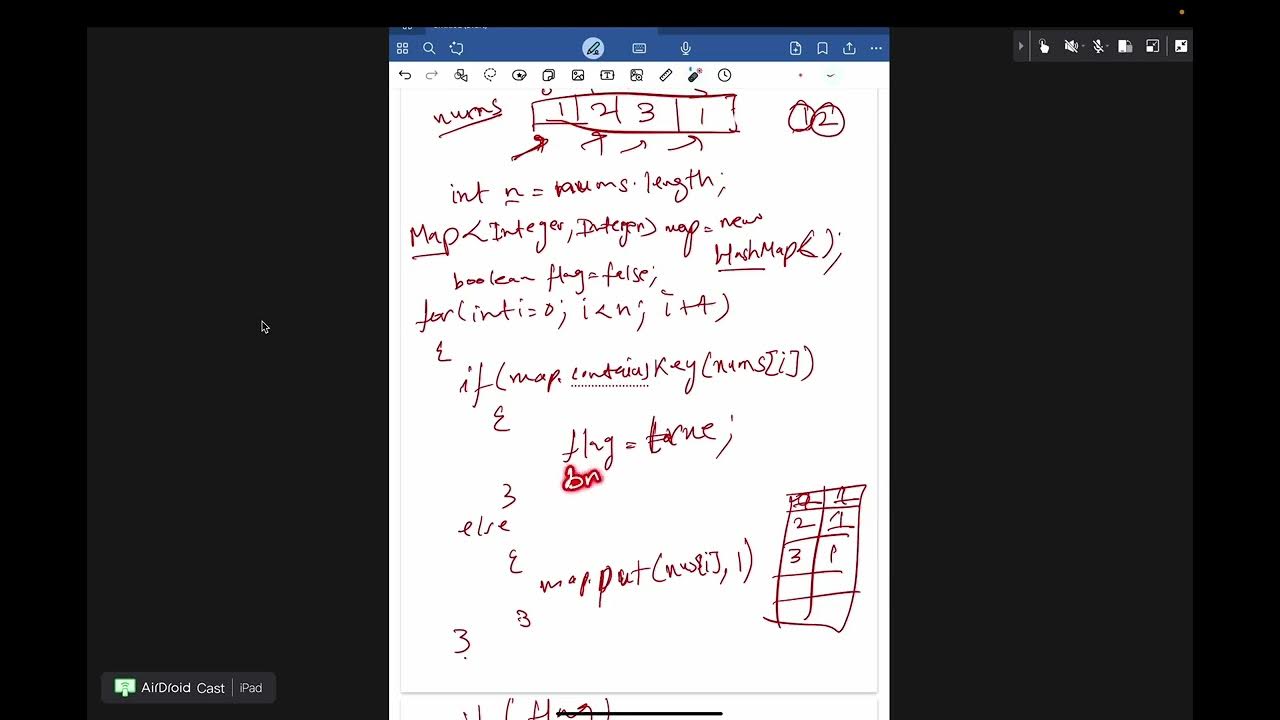 nums 1 2 3 1 1 2
int n = nums.length;
Map<Integer, Integer> map = new
HashMap<>();
boolean flag = false;
for(int i=0; i<n; i++)
{
if(map.containsKey(nums[i])
{
flag = true;
br
}
else
{
map.put(nums[i], 1)
}
}
1 1
2 1
3 1
if (flag)
AirDroid Cast | iPad